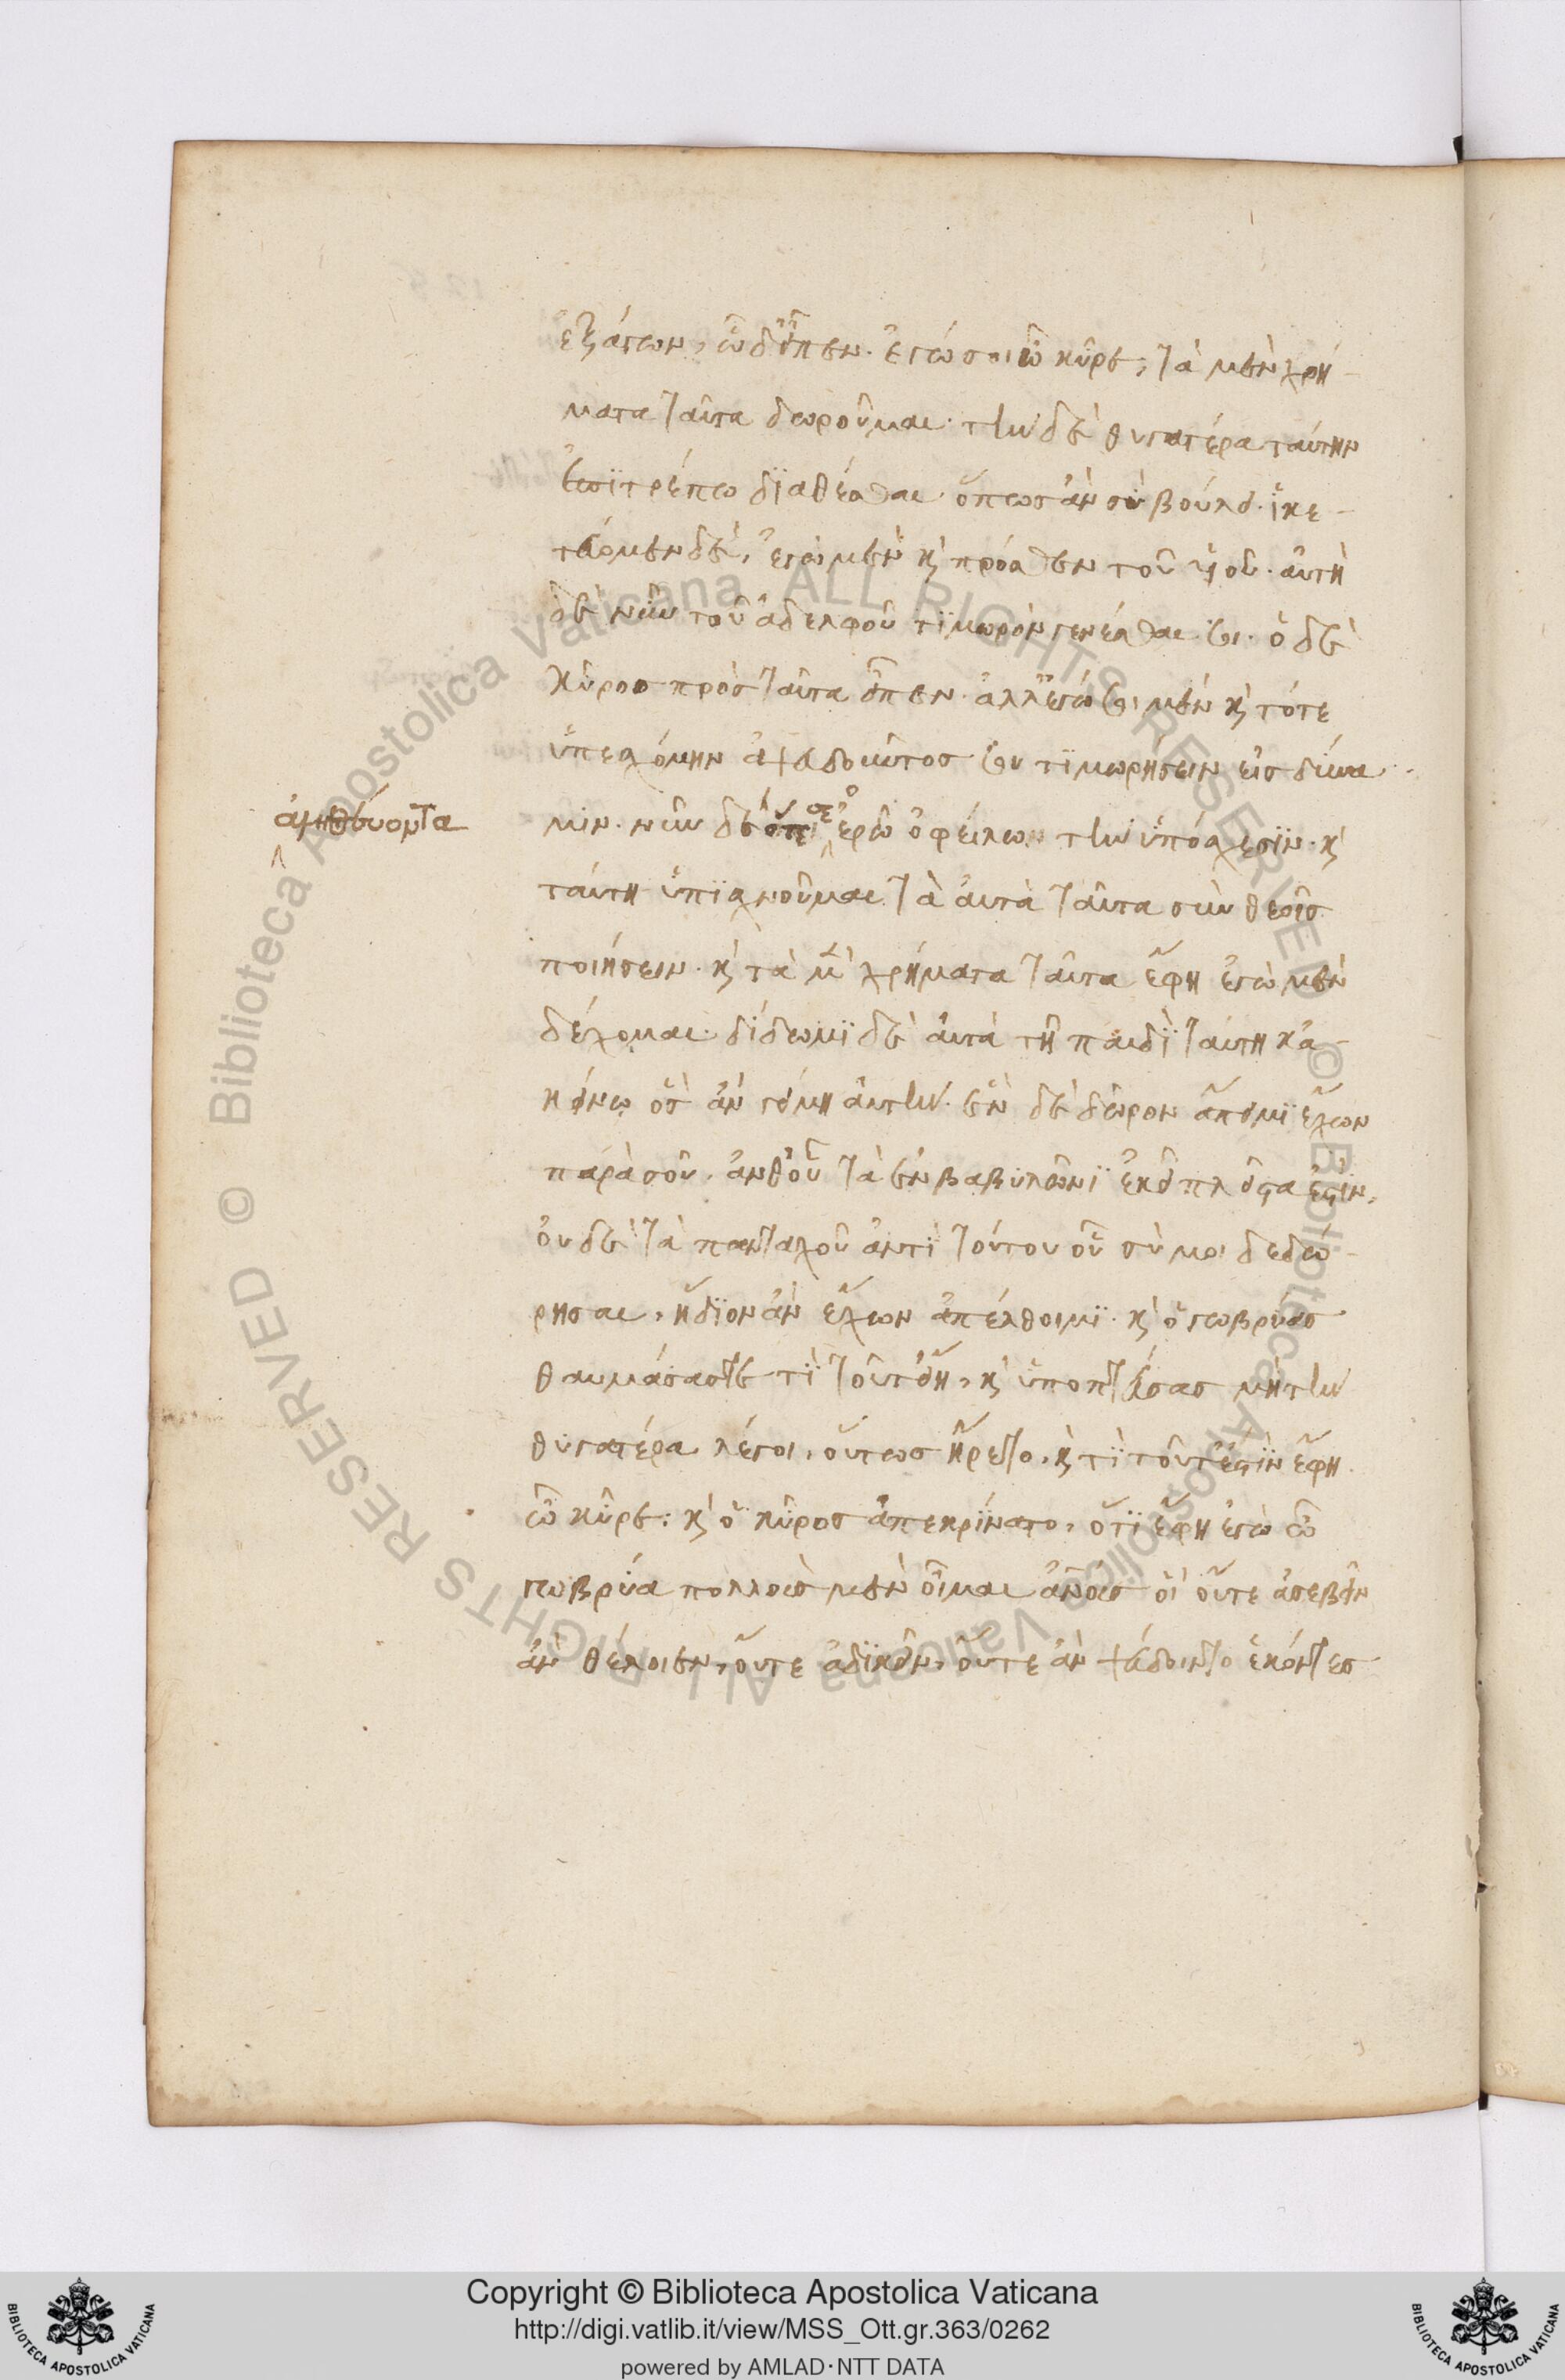 ἐξάγων, ὧδ' εἶπεν. ἐγώ σοι ὦ κῦρε, τὰ μὲν χρή-
ματα ταῦτα δωροῦμαι. τὴν δὲ θυγατέρα ταύτην
ἐπιτρέπω διαθέσθαι ὅπως ἂν σὺ βούλει. ἱκε-
τεύομεν δὲ, ἐγὼ μὲν καὶ πρόσθεν τοῦ υἱοῦ. αὐτὴ
δὲ νῦν τοῦ ἀδελφοῦ τιμωρὸν γενέσθαι σοι. ὁ δὲ
κῦρος πρὸς ταῦτα εἶπεν. ἀλλ' ἐγώ σοι μὲν καὶ τότε
ὑπεσχόμην ἀψευδοῦντος σου τιμωρήσειν εἰς δύνα
μιν. νῦν δὲ σε ὁρῶ ὀφείλων τὴν ὑπόσχεσιν. καὶ
ἀληθεύοντα
ταύτη ὑπισχνοῦμαι τὰ αὐτὰ ταῦτα σὺν θεοῖς
ποιήσειν. καὶ τὰ μὲν χρήματα ταῦτα ἔφη ἐγὼ μὲν
δέχομαι. δίδωμι δὲ αὐτὰ τῆ παιδὶ ταύτη κἀ-
κείνω ὃς ἂν γήμη αὐτήν. ἓν δὲ δῶρον ἄπειμι ἔχων
παρὰ σοῦ. ἀνθ' οὗ τὰ ἐν βαβυλῶνι ἐκεῖ πλεῖστα ἐστιν,
οὐδὲ τὰ πανταχοῦ ἀντὶ τούτου οὗ σύ μοι δεδώ-
ρησαι, ἥδιον ἂν ἔχων ἀπέλθοιμι. καὶ ὁ γωβρύας
θαυμάσας τε τί τοῦτ' εἴη, καὶ ὑποπτεύσας μὴ τὴν
θυγατέρα λέγοι, οὕτως ἤρετο, καὶ τί τοῦτ' ἐστὶν ἔφη
ὦ κῦρε; καὶ ὁ κῦρος ἀπεκρίνατο, ὅτι ἔφη ἐγὼ ὦ
γωβρύα πολλοὺς μὲν οἶμαι ἀνους οἳ οὔτε ἀσεβεῖν
ἂν θέλοιεν, οὔτε ἀδικεῖν, οὔτε ἂν ψεύδοιντο ἑκόντες
Copyright © Biblioteca Apostolica Vaticana
http://digi.vatlib.it/view/MSS_Ott.gr.363/0262
powered by AMLAD·NTT DATA